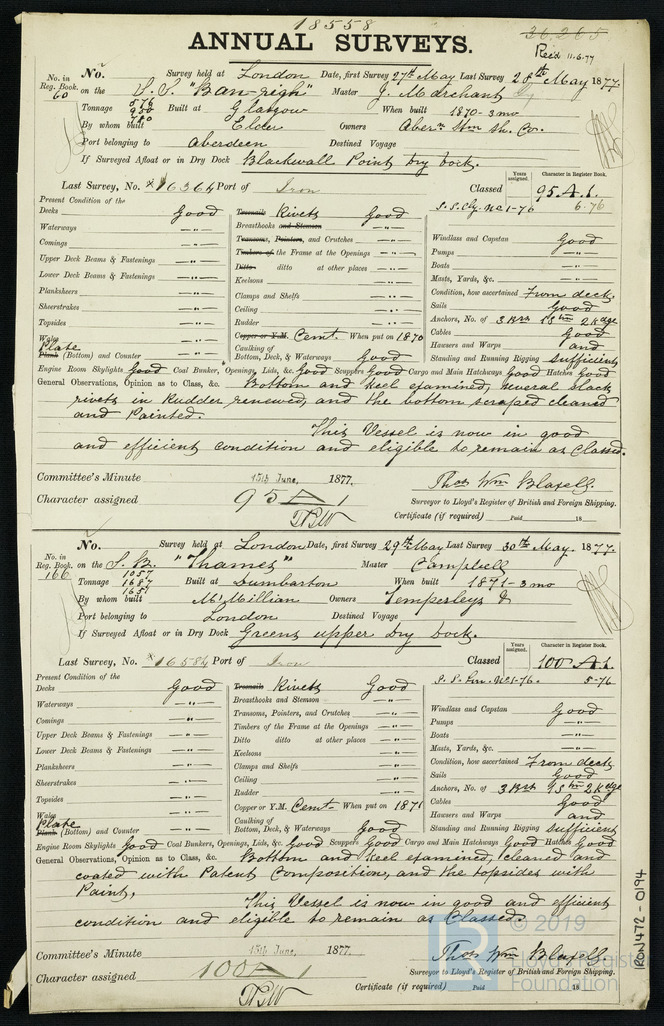 18558
36,265
ANNUAL SURVEYS.
Recd 11.6.77
No. in Reg. Book. 60
No. Survey held at London Date, first Survey 27th May Last Survey 28th May 1877.
on the S.S. "Ban-righ" Master J. Marchant
Tonnage 576 950 780 Built at Glasgow When built 1870-3mo
By whom built Elder Owners Abern Stm Sh. Co.
Port belonging to Aberdeen Destined Voyage
If Surveyed Afloat or in Dry Dock Blackwall Point Dry Dock.
Last Survey, No. *16364 Port of Iron Classed
Years assigned.
Character in Register Book.
95 A.1.
S.S.Cly. No1-76 6.76
Present Condition of the
Decks Good
Waterways —"—
Comings —"—
Upper Deck Beams & Fastenings —"—
Lower Deck Beams & Fastenings —"—
Planksheers —"—
Sheerstrakes —"—
Topsides —"—
Wales —"—
Plate Plank (Bottom) and Counter —"—
Treenails Rivets Good
Breasthooks and Stemson —"—
Transoms, Pointers, and Crutches —"—
Timbers of the Frame at the Openings —"—
Ditto ditto at other places —"—
Keelsons —"—
Clamps and Shelfs —"—
Ceiling —"—
Rudder —"—
Copper or Y.M. Cemt. When put on 1870
Caulking of Bottom, Deck, & Waterways Good
Windlass and Capstan Good
Pumps —"—
Boats —"—
Masts, Yards, &c. —"—
Condition, how ascertained From deck.
Sails Good
Anchors, No. of 3 Brs 1 Stm 2 Kdge
Cables Good
Hawsers and Warps and
Standing and Running Rigging sufficient
Engine Room Skylights Good Coal Bunker, Openings, Lids, &c. Good Scuppers Good Cargo and Main Hatchways Good Hatches Good
General Observations, Opinion as to Class, &c. Bottom and Keel examined, several slack
rivets in Rudder renewed, and the bottom scraped cleaned
and Painted.
This Vessel is now in good
and efficient condition and eligible to remain as Classed.
Committee's Minute 15th June, 1877.
Character assigned 95 A 1
Thos Wm Blaxell.
Surveyor to Lloyd's Register of British and Foreign Shipping.
Certificate (if required) Paid 18
No. in Reg. Book. 166
No. Survey held at London Date, first Survey 29th May Last Survey 30th May. 1877.
on the S.S. "Thames" Master Campbell
Tonnage 1057 1687 1651 Built at Dumbarton When built 1871-3mo
By whom built McMillian Owners Temperleys &
Port belonging to London Destined Voyage
If Surveyed Afloat or in Dry Dock Greens upper Dry Dock.
Last Survey, No. *16584 Port of Iron Classed
Years assigned.
Character in Register Book.
100 A.1.
S.S. Lon. No1-76. 5-76
Present Condition of the
Decks Good
Waterways —"—
Comings —"—
Upper Deck Beams & Fastenings —"—
Lower Deck Beams & Fastenings —"—
Planksheers —"—
Sheerstrakes —"—
Topsides —"—
Wales —"—
Plate Plank (Bottom) and Counter —"—
Treenails Rivets Good
Breasthooks and Stemson —"—
Transoms, Pointers, and Crutches —"—
Timbers of the Frame at the Openings —"—
Ditto ditto at other places —"—
Keelsons —"—
Clamps and Shelfs —"—
Ceiling —"—
Rudder —"—
Copper or Y.M. Cemt. When put on 1871
Caulking of Bottom, Deck, & Waterways Good
Windlass and Capstan Good
Pumps —"—
Boats —"—
Masts, Yards, &c. —"—
Condition, how ascertained From deck
Sails Good
Anchors, No. of 3 Brs 1 Stm 2 Kdge
Cables Good
Hawsers and Warps and
Standing and Running Rigging sufficient
Engine Room Skylights Good Coal Bunkers, Openings, Lids, &c. Good Scuppers Good Cargo and Main Hatchways Good Hatches Good
General Observations, Opinion as to Class, &c. Bottom and Keel examined, cleaned and
coated with Patent Composition, and the topsides with
Paint,
This Vessel is now in good and efficient
condition and eligible to remain as Classed.
Committee's Minute 15th June, 1877.
Character assigned 100 A 1
Thos Wm Blaxell.
Surveyor to Lloyd's Register of British and Foreign Shipping.
Certificate (if required) Paid 18
IRON472-0194
© 2019
Lloyd's Register
Foundation